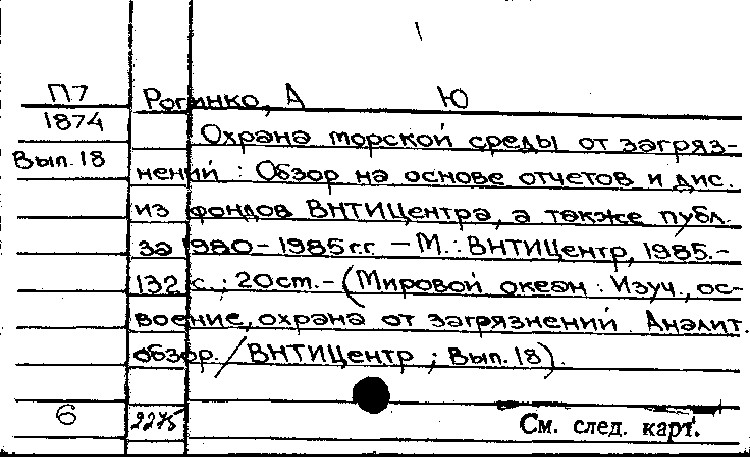 П7 Рогинко, А Ю
1874 Охрана морской среды от загряз-
Вып. 18 нений : Обзор на основе отчетов и дис.
из фондов ВНТИЦентра, а также публ.
за 1980-1985 г.г. - М. : ВНТИЦентр, 1985. -
132 с.; 20 см. - (Мировой океан : Изуч., ос-
воение, охрана от загрязнений. Аналит.
обзор. / ВНТИЦентр ; Вып. 18).
6 2275 См. след. карт.